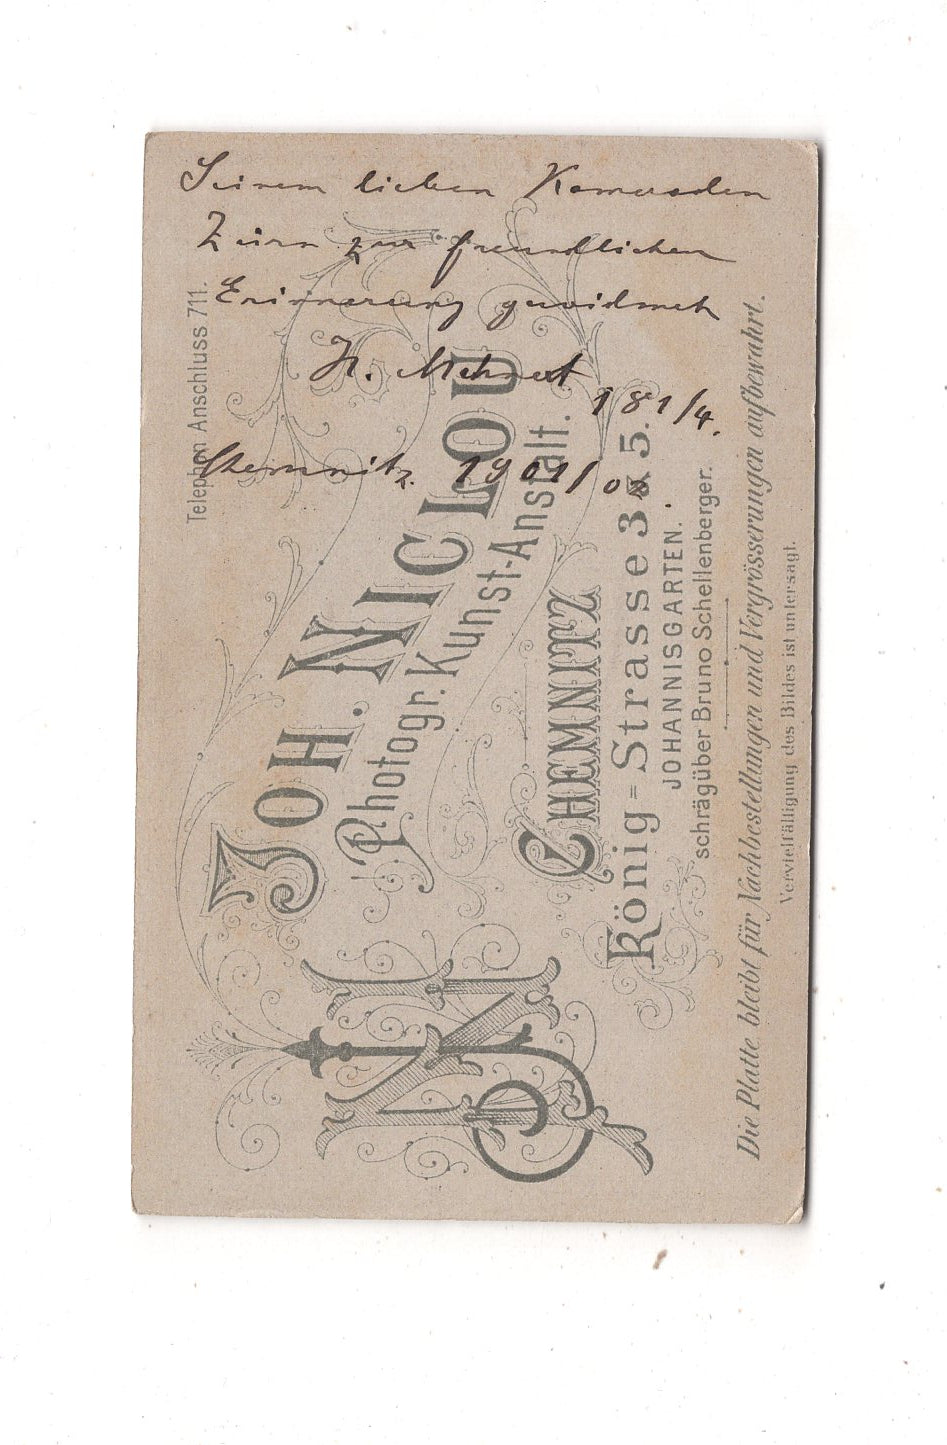 Seinem lieben Kameraden
zur freundlichen
Erinnerung gewidmet
H. Mehnert
181/4.
Chemnitz. 1901/02.
Telephon Anschluss 711.
JOH. NICLOU
Photogr. Kunst-Anstalt.
CHEMNITZ
König-Strasse 3 & 5.
JOHANNISGARTEN.
schrägüber Bruno Schellenberger.
Die Platte bleibt für Nachbestellungen und Vergrösserungen aufbewahrt.
Vervielfältigung des Bildes ist untersagt.